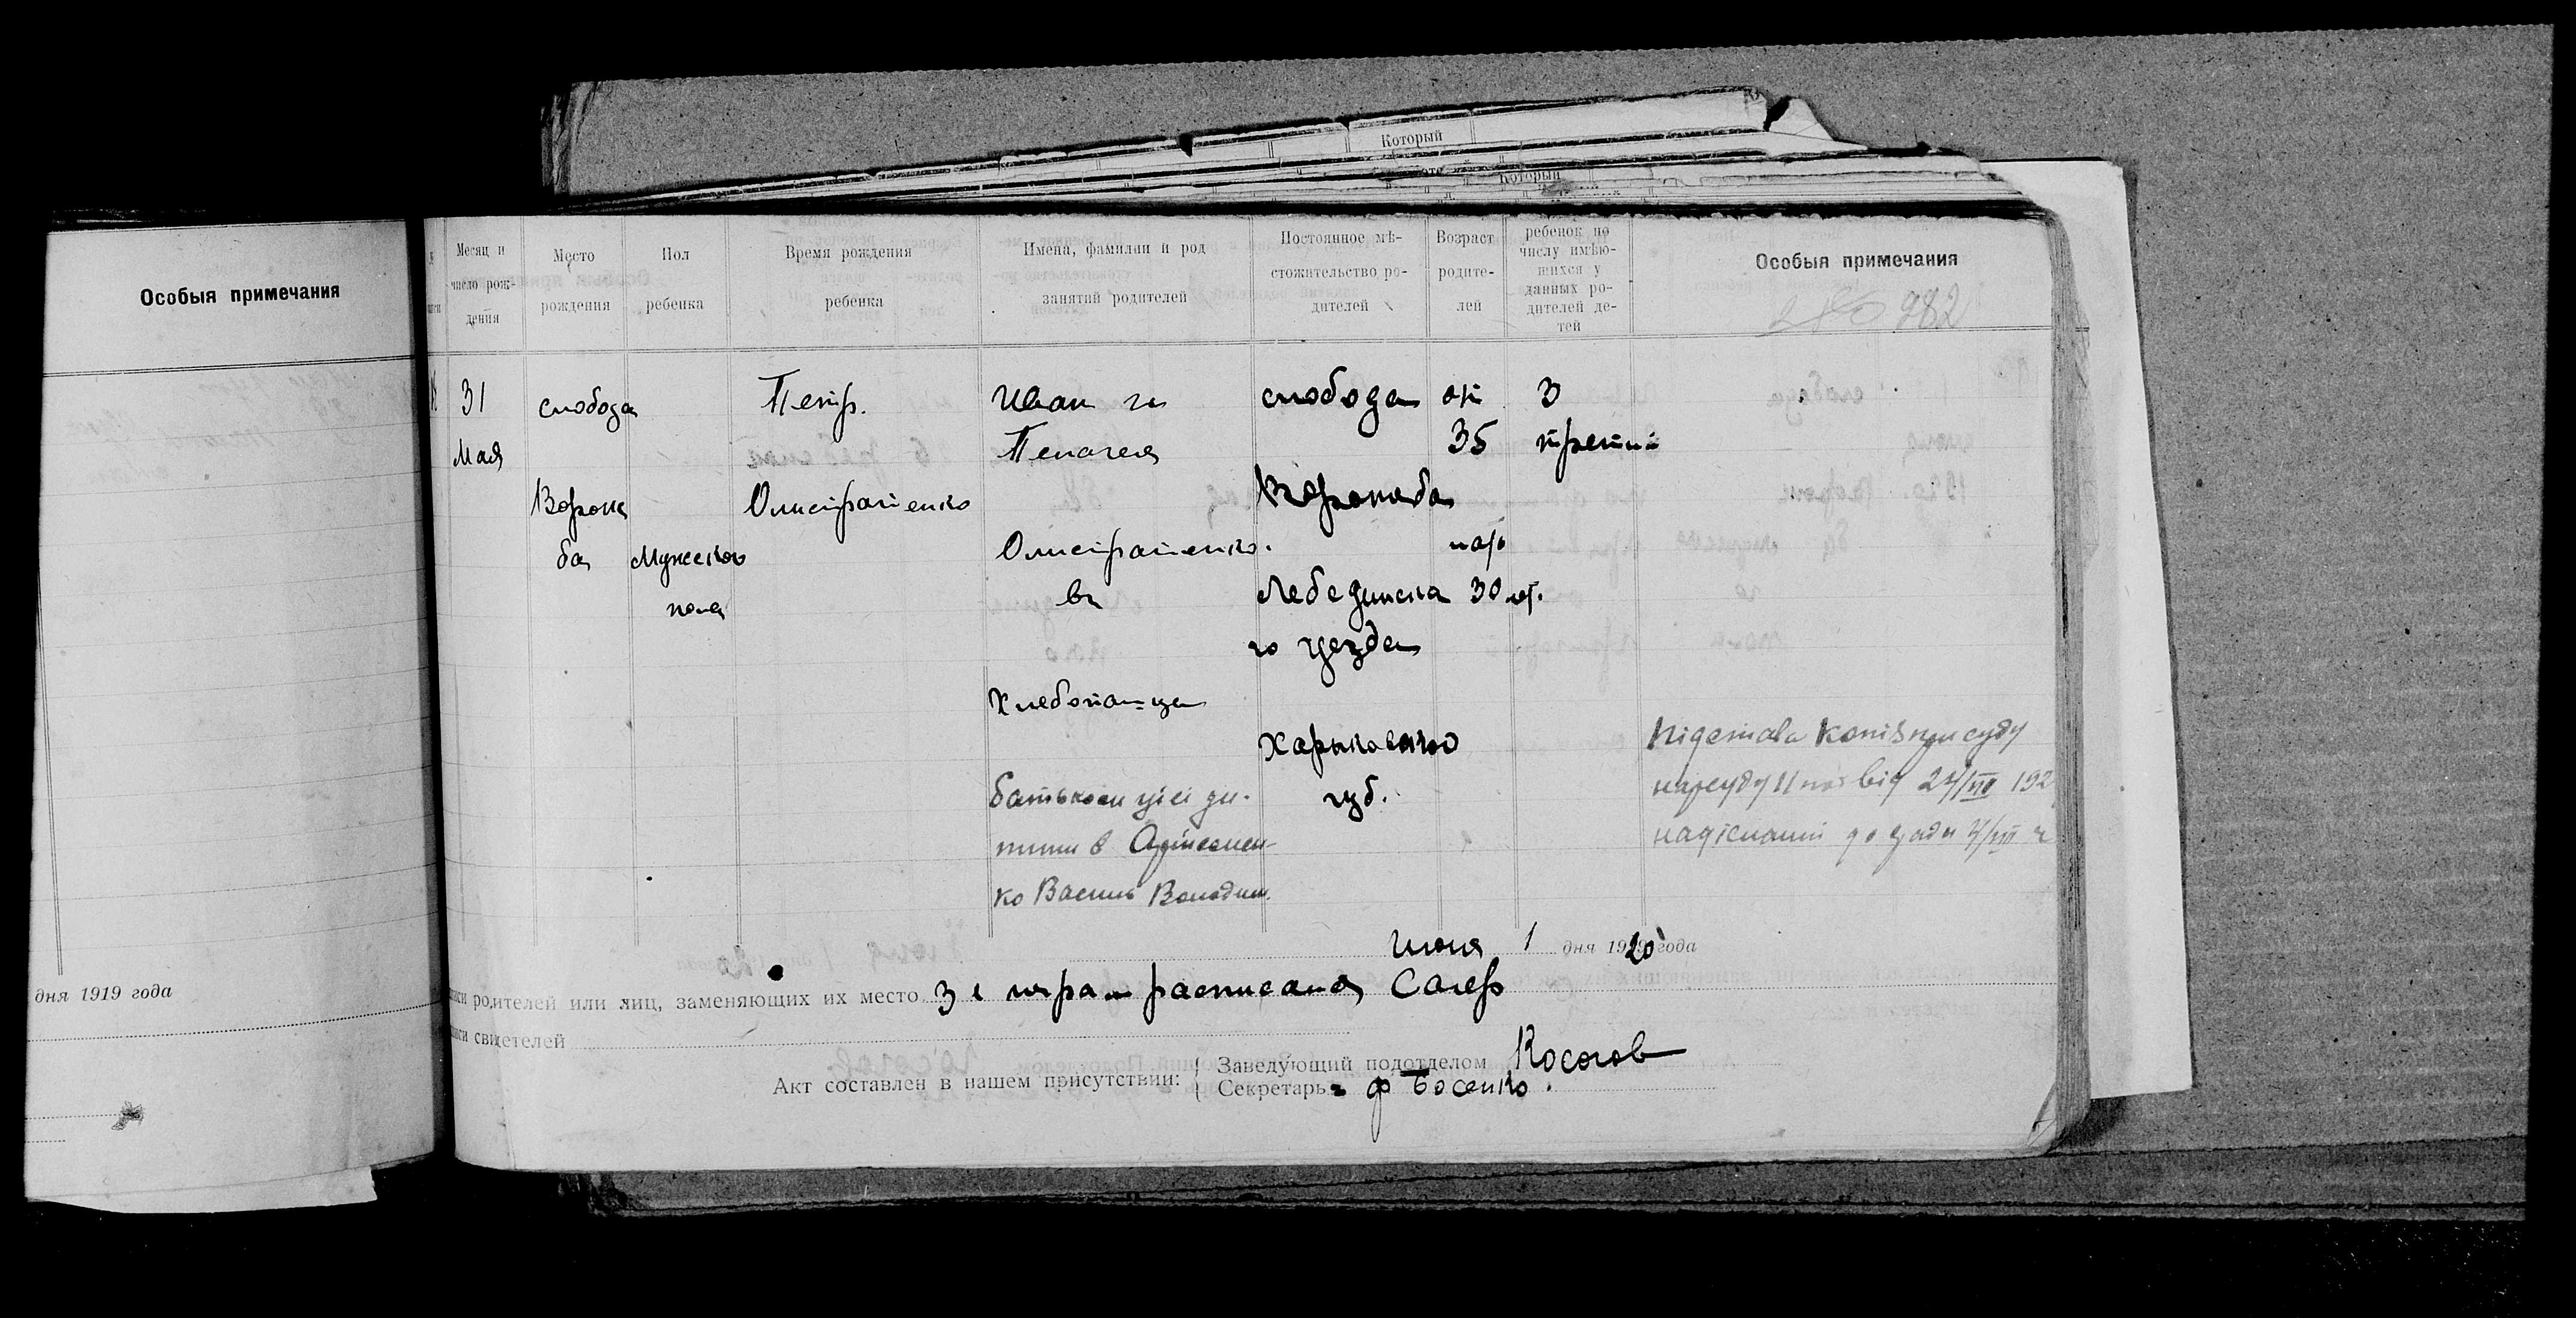 Который
Который
Особыя примечания
дня 1919 года
Месяц и число рож-дения
Место рождения
Пол ребенка
Время рождения ребенка
Имена, фамилии и род занятий родителей
Постоянное мѣ-стожительство ро-дителей
Возраст родите-лей
ребенок по числу имѣю-щихся у данных ро-дителей де-тей
Особыя примечания
982
31
Мая
слобода
Ворож
ба
Мужского
пола
Петр.
Олистратенко
Иван и
Пелагея
Олистратенко.
Хлебопашцы
батьком цієї ди-
тини є
ко Василь Володим.
слобода
Ворожба
Лебединска
го уезда
Харьковской
губ.
35
30 лет.
3
третий
Підстава копія присуду
нарсуду від 192
надісланий до
июня 1 дня 1920 года
родителей или лиц, заменяющих их место расписался
свидетелей
Акт составлен в нашем присутствии:
Заведующий подотделом Косогов
Секретарь Ф Босенко.